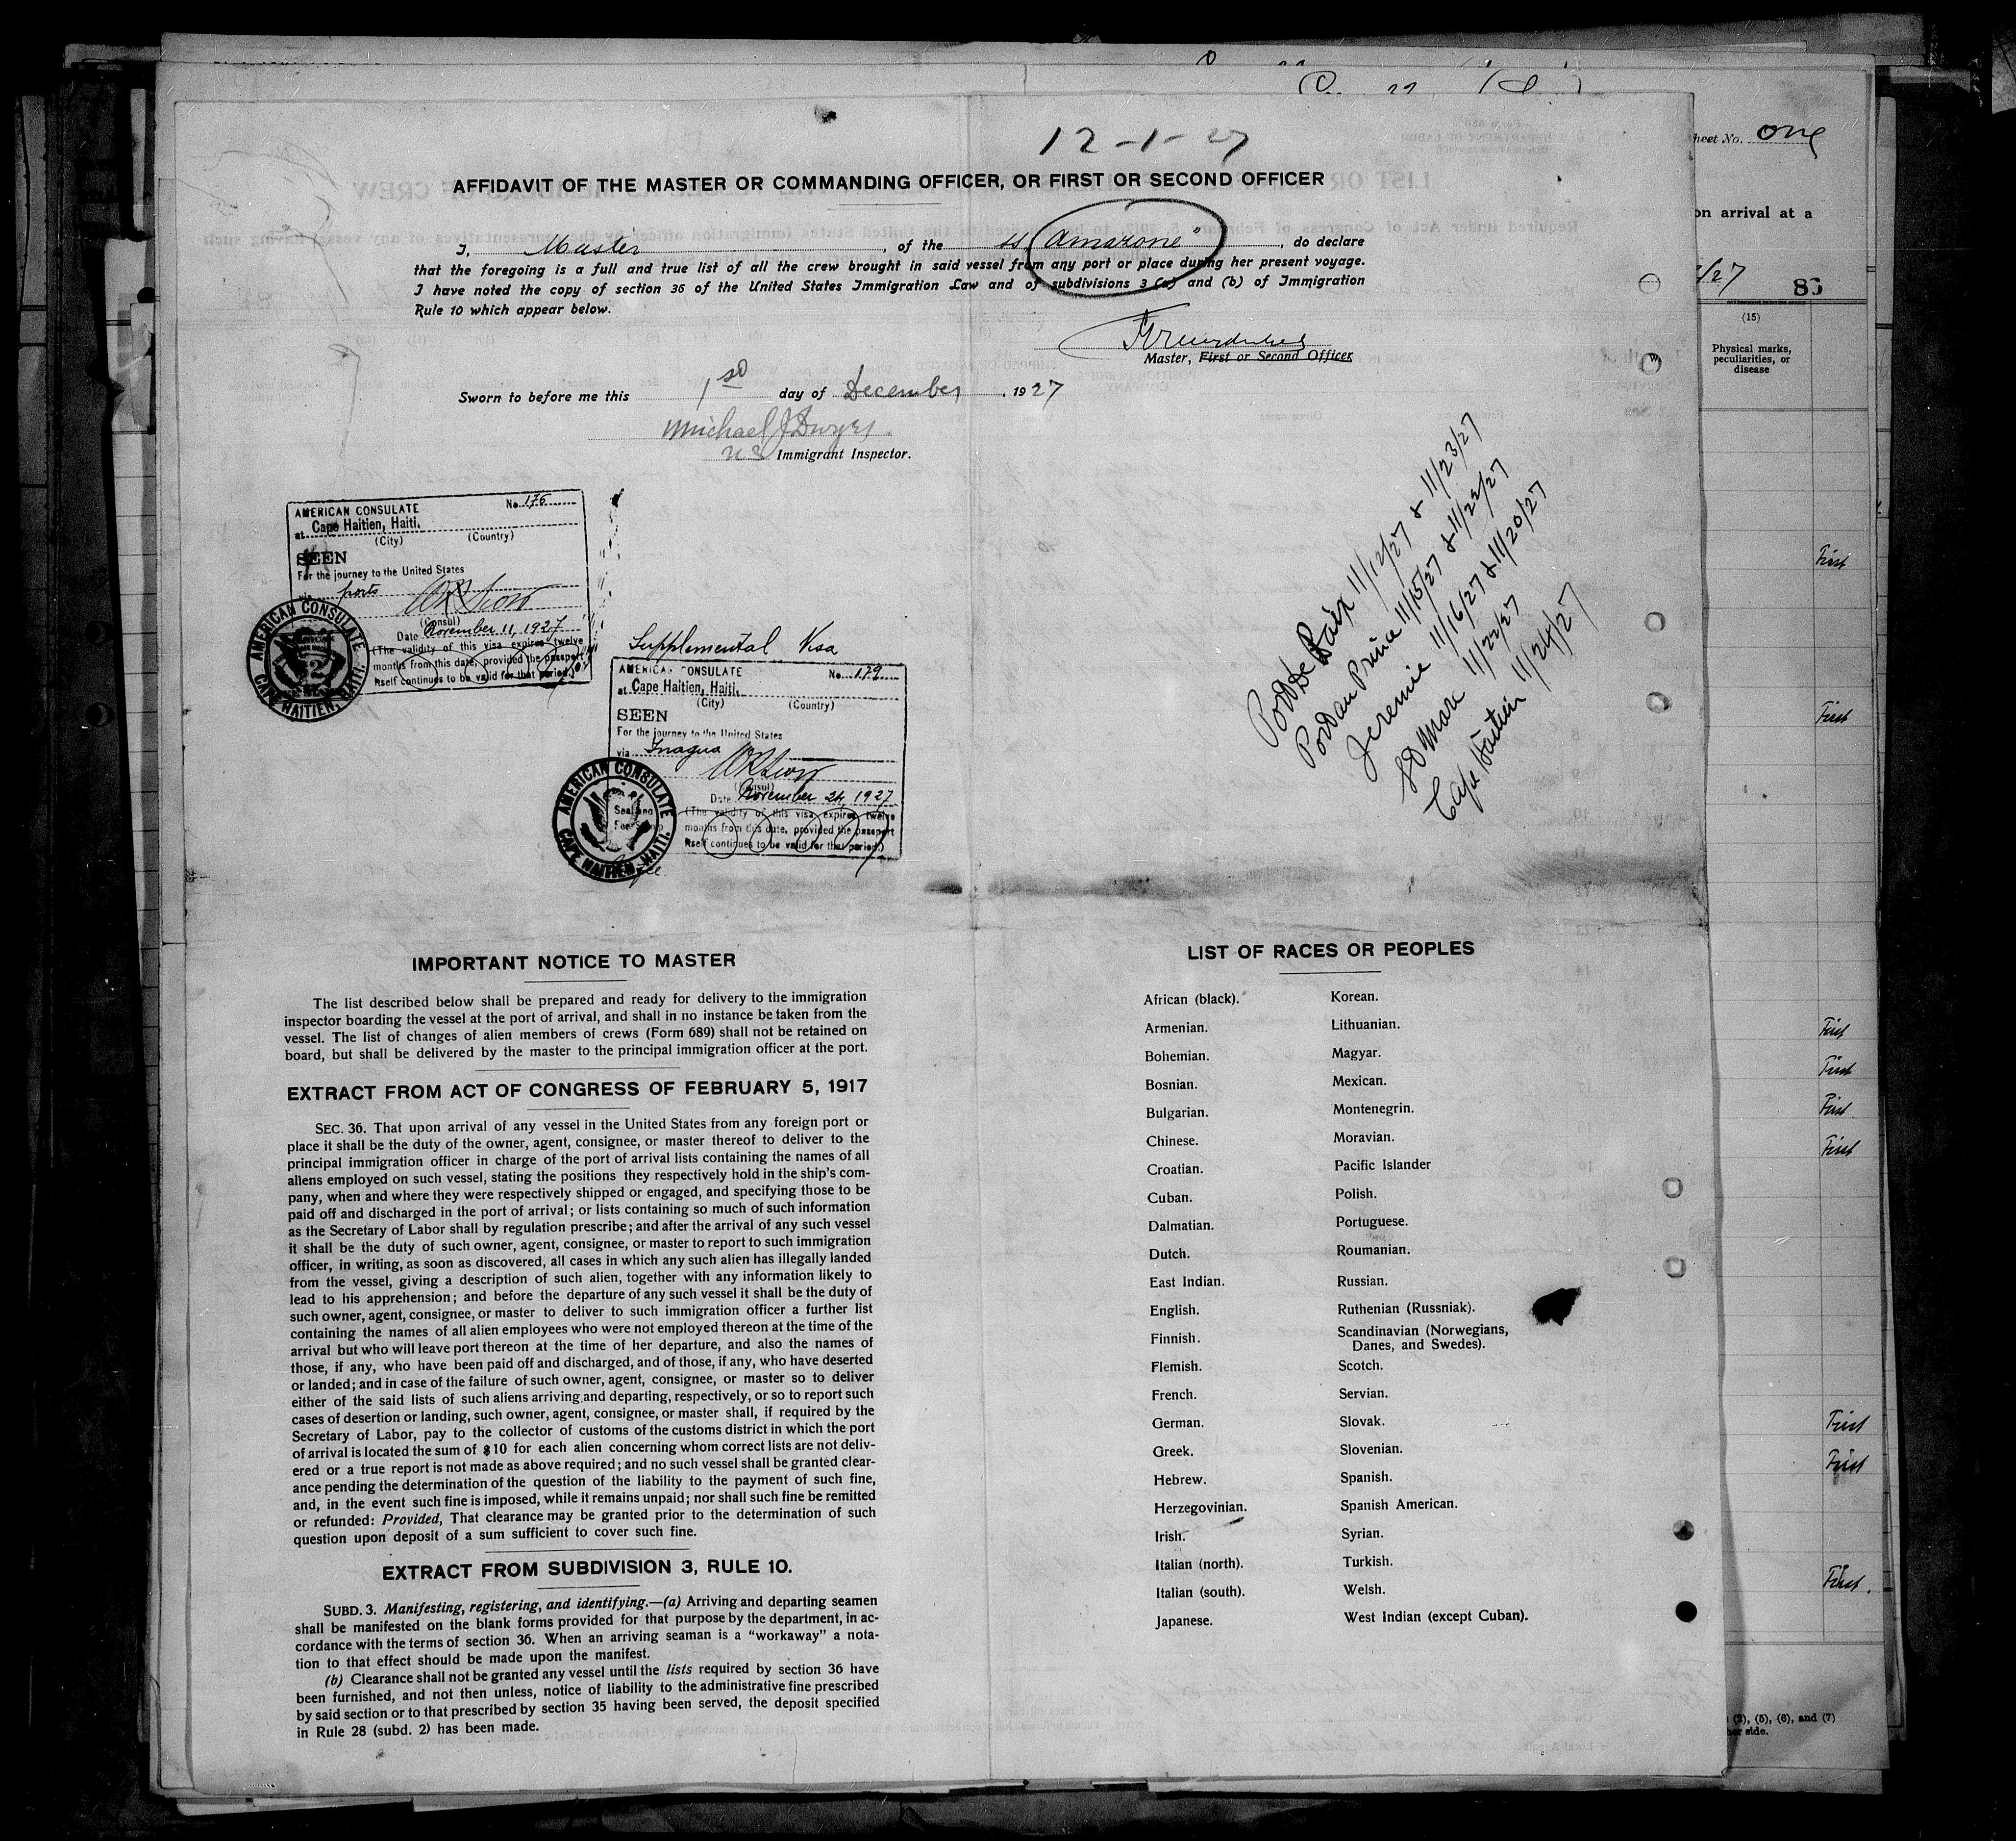 12-1-27
AFFIDAVIT OF THE MASTER OR COMMANDING OFFICER, OR FIRST OR SECOND OFFICER
I, Master, of the ss "Amazone", do declare
that the foregoing is a full and true list of all the crew brought in said vessel from any port or place during her present voyage.
I have noted the copy of section 36 of the United States Immigration Law and of subdivisions 3 (a) and (b) of Immigration
Rule 10 which appear below.
Master, First or Second Officer
Sworn to before me this 1st day of December, 1927
Michael J Dwyer
US Immigrant Inspector.
AMERICAN CONSULATE No. 176
at Cape Haitien, Haiti.
(City) (Country)
SEEN
For the journey to the United States
via ports
(Consul)
Date November 11, 1927
(The validity of this visa expires twelve
months from this date, provided the passport
itself continues to be valid for that period.)
AMERICAN CONSULATE
CAPE HAITIEN, HAITI.
Supplemental Visa
AMERICAN CONSULATE No. 179
at Cape Haitien, Haiti.
(City) (Country)
SEEN
For the journey to the United States
via Inagua
(Consul)
Date November 24, 1927
(The validity of this visa expires twelve
months from this date, provided the passport
itself continues to be valid for that period.)
AMERICAN CONSULATE
CAPE HAITIEN, HAITI.
Port De Paix 11/12/27 & 11/23/27
Port au Prince 11/15/27 & 11/22/27
Jeremie 11/16/27 & 11/20/27
St Marc 11/22/27
Cape Haitien 11/24/27
IMPORTANT NOTICE TO MASTER
The list described below shall be prepared and ready for delivery to the immigration
inspector boarding the vessel at the port of arrival, and shall in no instance be taken from the
vessel. The list of changes of alien members of crews (Form 689) shall not be retained on
board, but shall be delivered by the master to the principal immigration officer at the port.
EXTRACT FROM ACT OF CONGRESS OF FEBRUARY 5, 1917
SEC. 36. That upon arrival of any vessel in the United States from any foreign port or
place it shall be the duty of the owner, agent, consignee, or master thereof to deliver to the
principal immigration officer in charge of the port of arrival lists containing the names of all
aliens employed on such vessel, stating the positions they respectively hold in the ship's com-
pany, when and where they were respectively shipped or engaged, and specifying those to be
paid off and discharged in the port of arrival; or lists containing so much of such information
as the Secretary of Labor shall by regulation prescribe; and after the arrival of any such vessel
it shall be the duty of such owner, agent, consignee, or master to report to such immigration
officer, in writing, as soon as discovered, all cases in which any such alien has illegally landed
from the vessel, giving a description of such alien, together with any information likely to
lead to his apprehension; and before the departure of any such vessel it shall be the duty of
such owner, agent, consignee, or master to deliver to such immigration officer a further list
containing the names of all alien employees who were not employed thereon at the time of the
arrival but who will leave port thereon at the time of her departure, and also the names of
those, if any, who have been paid off and discharged, and of those, if any, who have deserted
or landed; and in case of the failure of such owner, agent, consignee, or master so to deliver
either of the said lists of such aliens arriving and departing, respectively, or so to report such
cases of desertion or landing, such owner, agent, consignee, or master shall, if required by the
Secretary of Labor, pay to the collector of customs of the customs district in which the port
of arrival is located the sum of $10 for each alien concerning whom correct lists are not deliv-
ered or a true report is not made as above required; and no such vessel shall be granted clear-
ance pending the determination of the question of the liability to the payment of such fine,
and, in the event such fine is imposed, while it remains unpaid; nor shall such fine be remitted
or refunded: Provided, That clearance may be granted prior to the determination of such
question upon deposit of a sum sufficient to cover such fine.
EXTRACT FROM SUBDIVISION 3, RULE 10.
SUBD. 3. Manifesting, registering, and identifying.—(a) Arriving and departing seamen
shall be manifested on the blank forms provided for that purpose by the department, in ac-
cordance with the terms of section 36. When an arriving seaman is a "workaway" a nota-
tion to that effect should be made upon the manifest.
(b) Clearance shall not be granted any vessel until the lists required by section 36 have
been furnished, and not then unless, notice of liability to the administrative fine prescribed
by said section or to that prescribed by section 35 having been served, the deposit specified
in Rule 28 (subd. 2) has been made.
LIST OF RACES OR PEOPLES
African (black). Korean.
Armenian. Lithuanian.
Bohemian. Magyar.
Bosnian. Mexican.
Bulgarian. Montenegrin.
Chinese. Moravian.
Croatian. Pacific Islander
Cuban. Polish.
Dalmatian. Portuguese.
Dutch. Roumanian.
East Indian. Russian.
English. Ruthenian (Russniak).
Finnish. Scandinavian (Norwegians,
Danes, and Swedes).
Flemish. Scotch.
French. Servian.
German. Slovak.
Greek. Slovenian.
Hebrew. Spanish.
Herzegovinian. Spanish American.
Irish. Syrian.
Italian (north). Turkish.
Italian (south). Welsh.
Japanese. West Indian (except Cuban).
heet No. one
on arrival at a
/27 86
(15)
Physical marks,
peculiarities, or
disease
First
First
First
First
First
First
First
First
First.
(2), (5), (6), and (7)
her side.